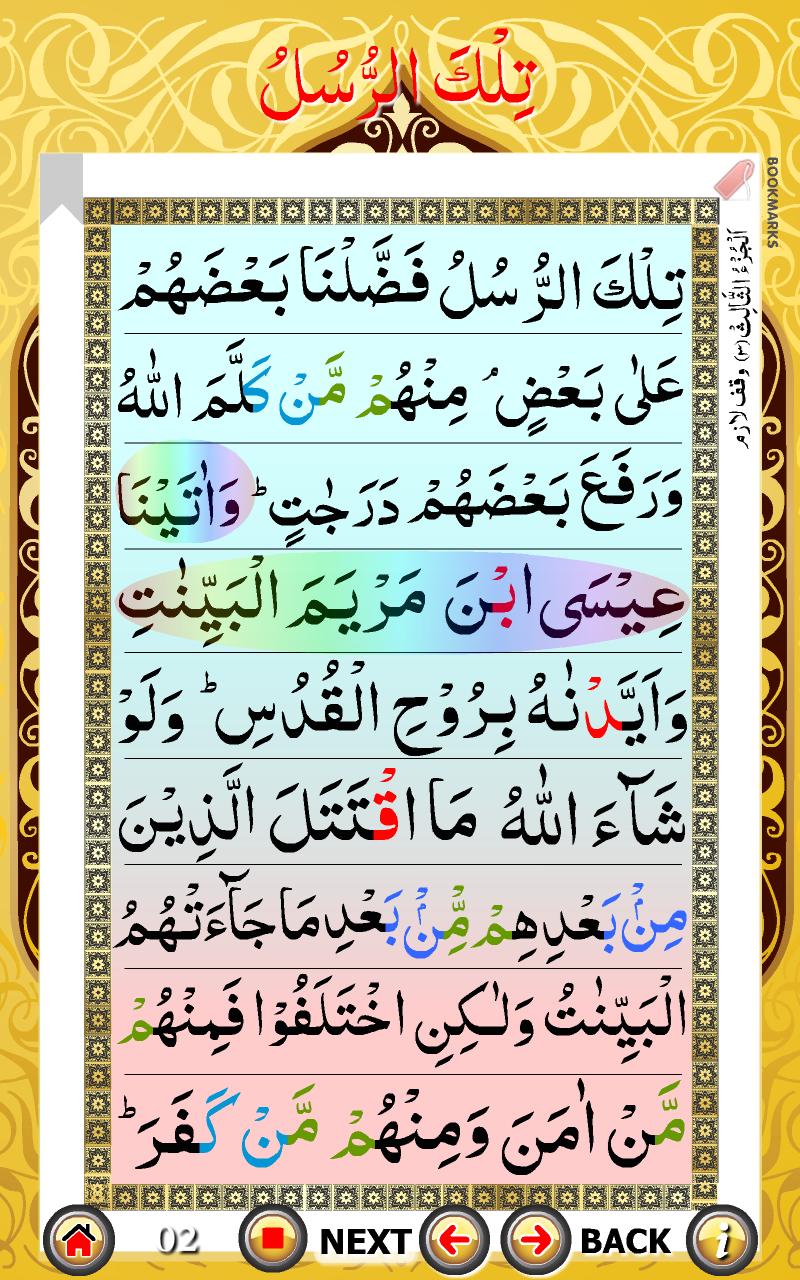 تِلْكَ الرُّسُلُ
BOOKMARKS
اَلْجُزْءُ الثَّالِثُ (۳) وقف لازم
تِلْكَ الرُّسُلُ فَضَّلْنَا بَعْضَهُمْ
عَلٰى بَعْضٍ ۘ مِنْهُمْ مَّنْ كَلَّمَ اللّٰهُ
وَرَفَعَ بَعْضَهُمْ دَرَجٰتٍ ؕ وَاٰتَيْنَا
عِيْسَى ابْنَ مَرْيَمَ الْبَيِّنٰتِ
وَاَيَّدْنٰهُ بِرُوْحِ الْقُدُسِ ؕ وَلَوْ
شَآءَ اللّٰهُ مَا اقْتَتَلَ الَّذِيْنَ
مِنْۢ بَعْدِهِمْ مِّنْۢ بَعْدِ مَا جَآءَتْهُمُ
الْبَيِّنٰتُ وَلٰكِنِ اخْتَلَفُوْا فَمِنْهُمْ
مَّنْ اٰمَنَ وَمِنْهُمْ مَّنْ كَفَرَ ؕ
02 NEXT BACK i